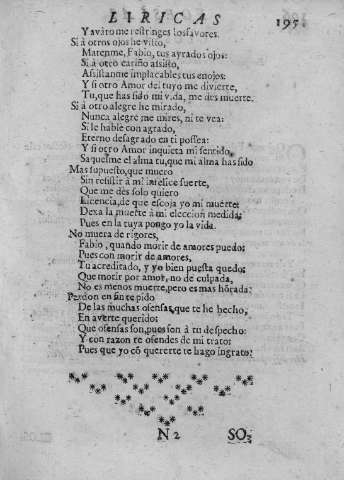 LIRICAS 195
Y avaro me restringes los favores.
Si à otros ojos he visto,
Matenme, Fabio, tus ayrados ojos:
Si à otro cariño assisto,
Assistanme implacables tus enojos:
Y si otro Amor del tuyo me divierte,
Tu, que has sido mi vida, me des muerte.
Si à otro alegre he mirado,
Nunca alegre me mires, ni te vea:
Si le hablè con agrado,
Eterno desagrado en ti possea:
Y si otro Amor inquieta mi sentido,
Saquesme el alma tu, que mi alma has sido
Mas supuesto, que muero
Sin resistir à mi infelice suerte,
Que me dès solo quiero
Licencia, de que escoja yo mi muerte:
Dexa la muerte à mi eleccion medida;
Pues en la tuya pongo yo la vida.
No muera de rigores,
Fabio, quando morir de amores puedo;
Pues con morir de amores,
Tu acreditado, y yo bien puesta quedo;
Que morir por amor, no de culpada,
No es menos muerte, pero es mas hõrada:
Perdon en fin te pido
De las muchas ofensas, que te he hecho,
En averte querido:
Que ofensas son, pues son à tu despecho:
Y con razon te ofendes de mi trato:
Pues que yo cõ quererte te hago ingrato:
N 2 SO-